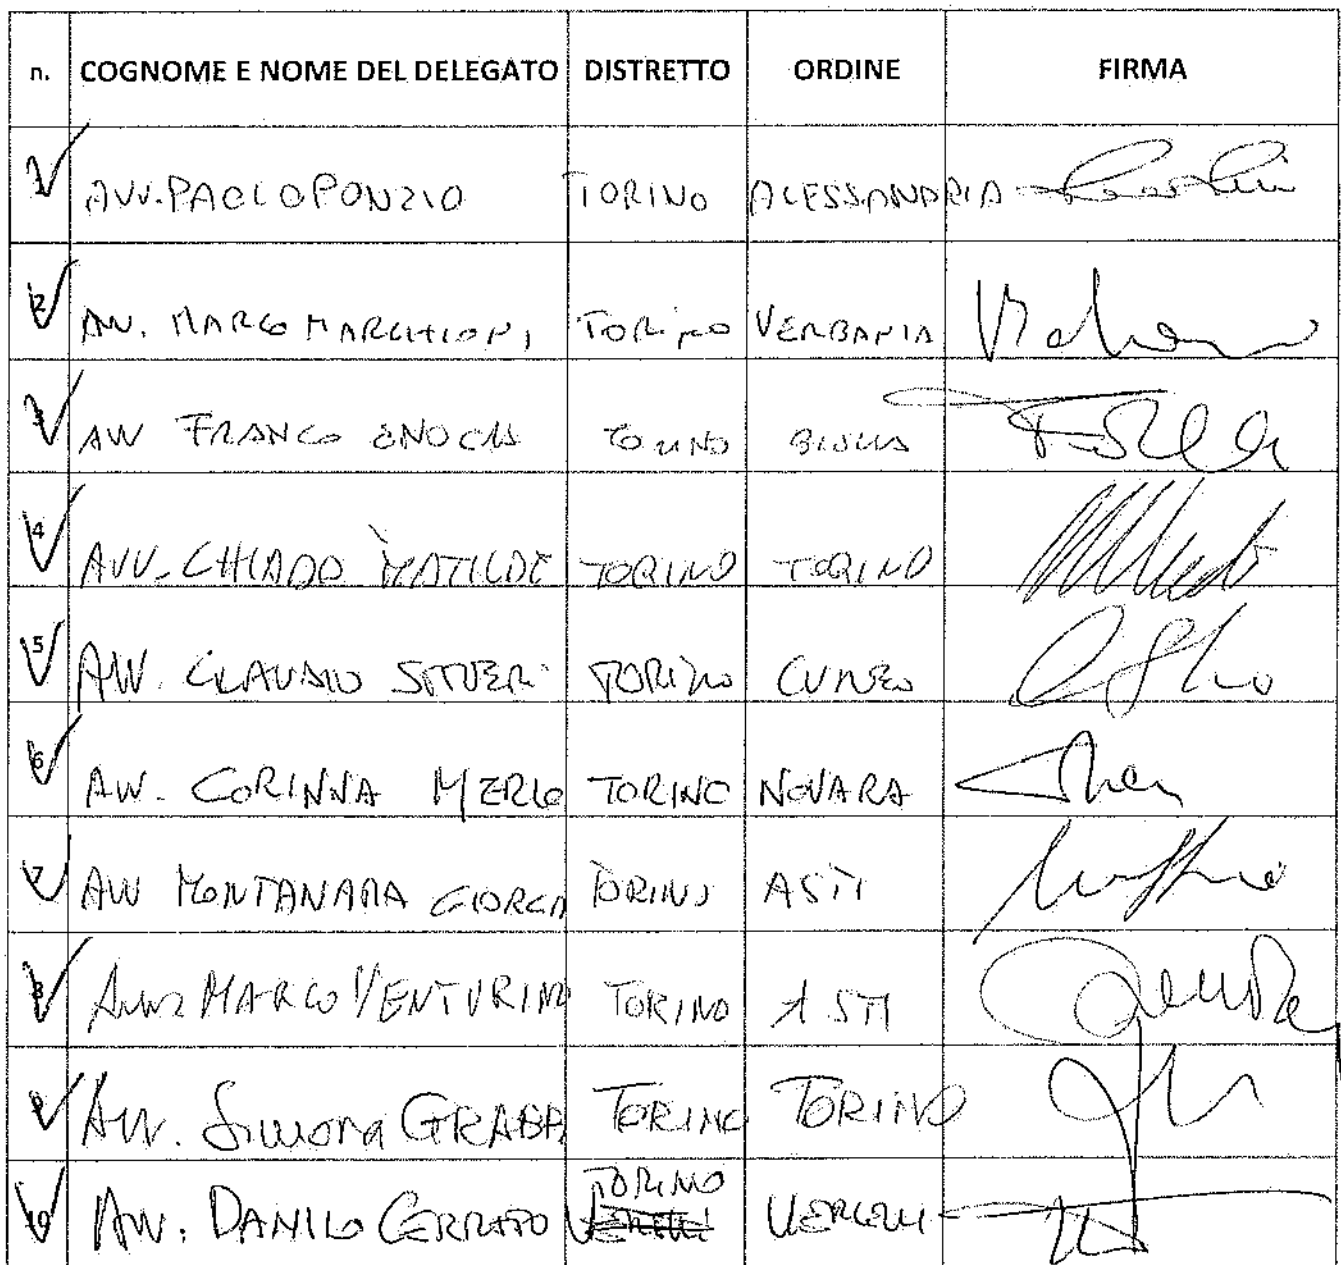 n. COGNOME E NOME DEL DELEGATO DISTRETTO ORDINE FIRMA
1 AVV. PAOLO PONZIO TORINO ALESSANDRIA
2 AVV. MARCO MARCHIONI TORINO VERBANIA
3 AVV FRANCO ENOCH TORINO BIELLA
4 AVV. CHIADO MATILDE TORINO TORINO
5 AVV. CLAUDIO TORINO CUNEO
6 AVV. CORINNA MERLO TORINO NOVARA
7 AVV MONTANARA GIORGIA TORINO ASTI
8 MARCO VENTURINO TORINO ASTI
9 AVV. Simona GRABBI TORINO TORINO
10 AVV. DANILO CERRATO TORINO VERCELLI